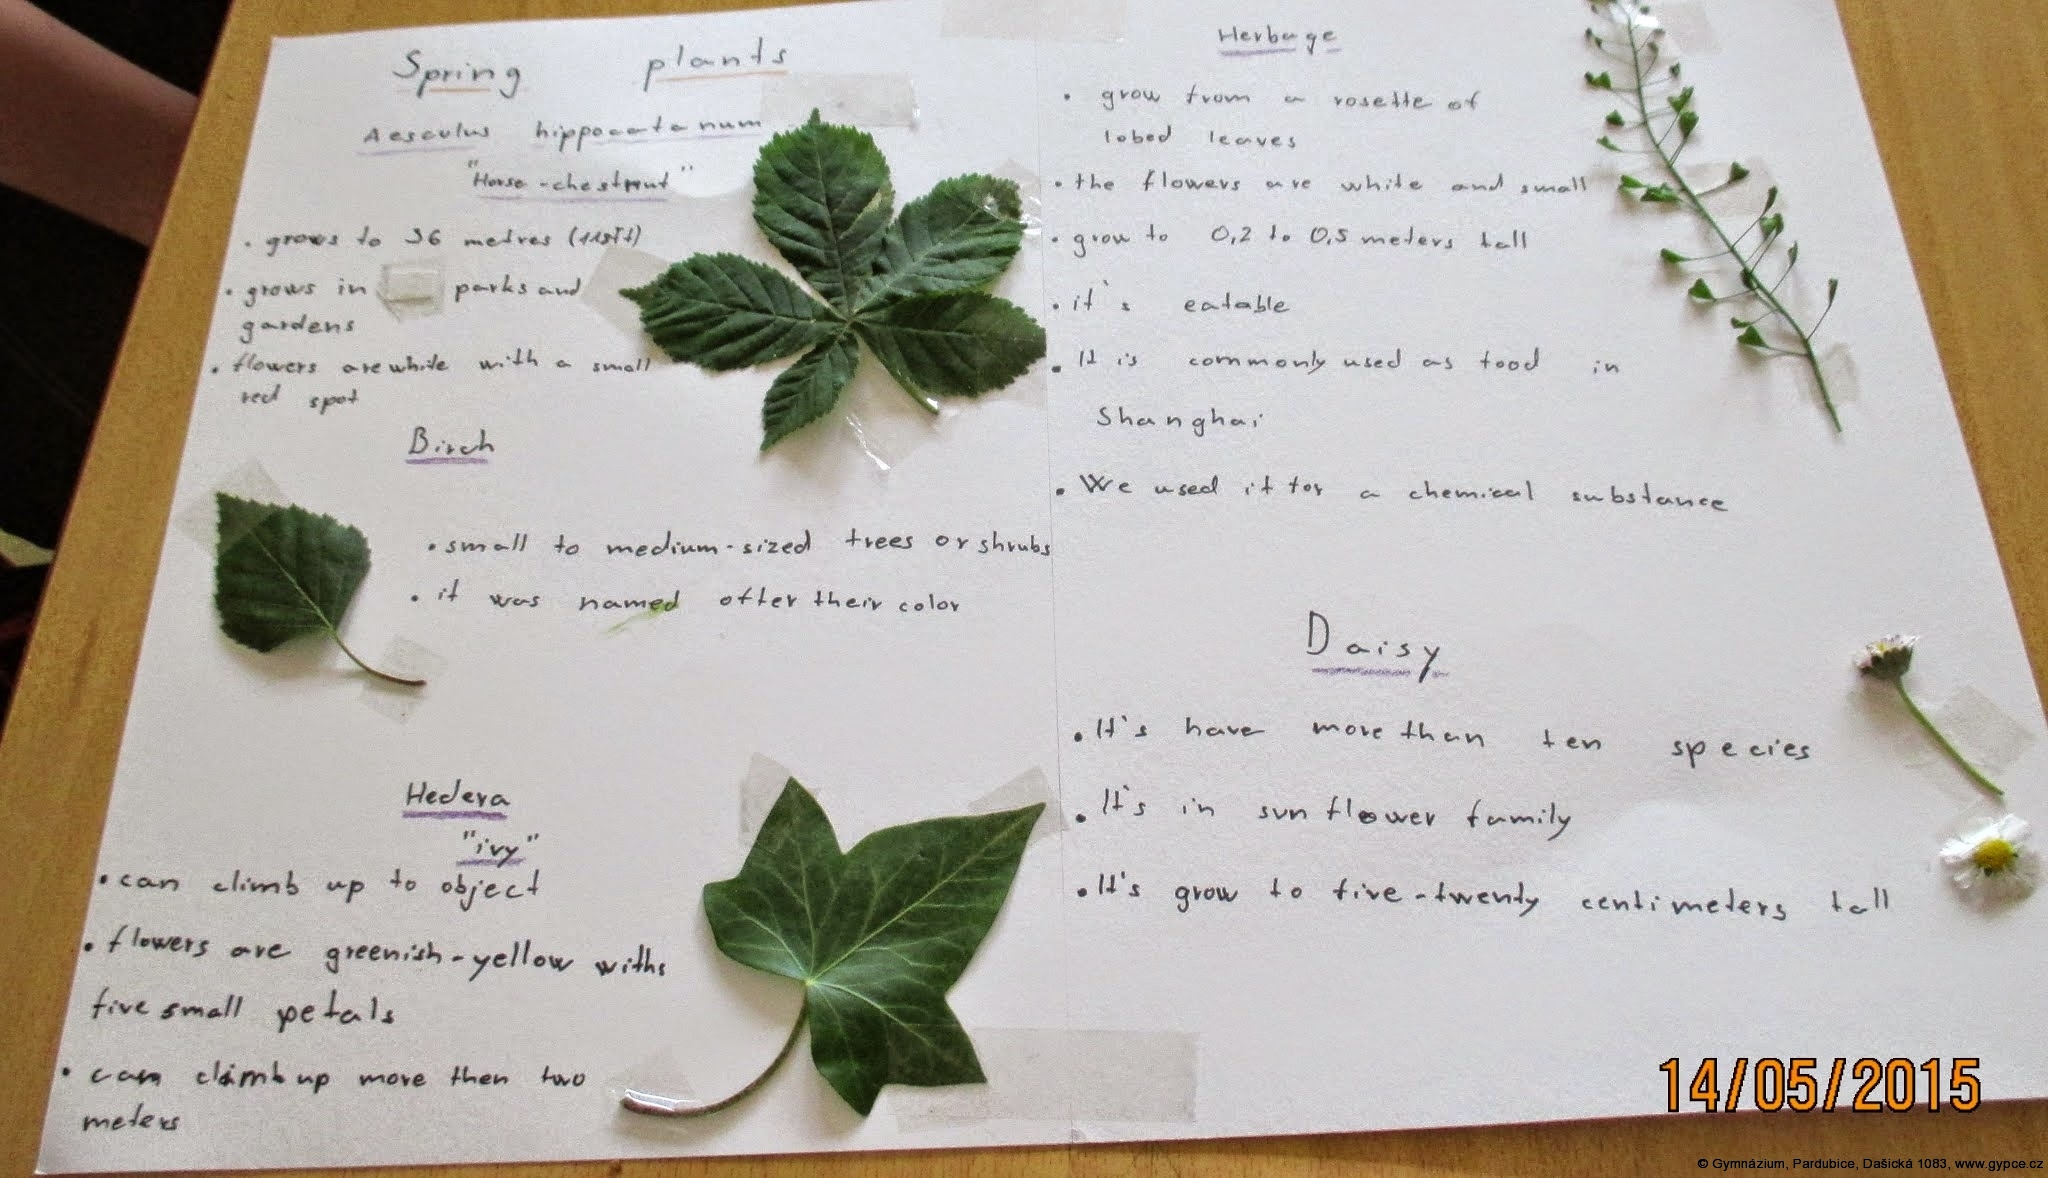 Spring plants
Aesculus hippocatanum
"Horse-chestnut"
• grows to 36 metres (118ft)
• grows in parks and
gardens
• flowers are white with a small
red spot
Birch
• small to medium-sized trees or shrubs
• it was named after their color
Hedera
"ivy"
• can climb up to object
• flowers are greenish-yellow withs
five small petals
• can climb up more then two
meters
Herbage
• grow from a rosette of
lobed leaves
• the flowers are white and small
• grow to 0,2 to 0,5 meters tall
• it's eatable
• It is commonly used as food in
Shanghai
• We used it for a chemical substance
Daisy
• It's have more than ten species
• It's in sunflower family
• It's grow to five-twenty centimeters tall
14/05/2015
© Gymnázium, Pardubice, Dašická 1083, www.gypce.cz